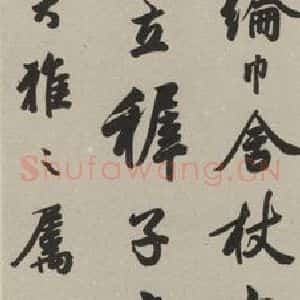 綸巾舍杖
立穉子
雅之属
Shufawang.CN